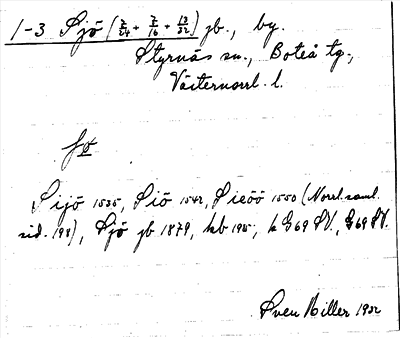 1-3 Sjö (7/24 + 7/16 + 13/32) jb., by.
Styrnäs sn., Boteå tg.,
Västernorrl. l.
Sijö 1535, Siö 1542, Sieöö 1550 (Norrl. saml.
sid. 198), Sjö jb 1879, kb 1901, k G69 SV., G69 SV.
Sven Miller 1932